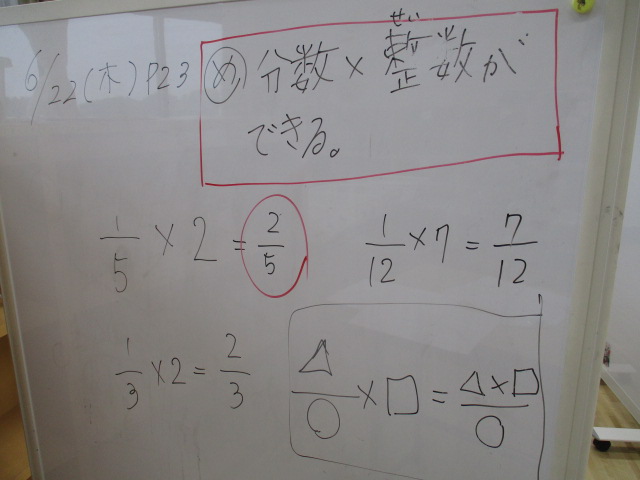 6/22(木) P23
め 分数×整数が
せい
できる。
1/5 × 2 = 2/5
1/12 × 7 = 7/12
1/3 × 2 = 2/3
△/○ × □ = △×□/○